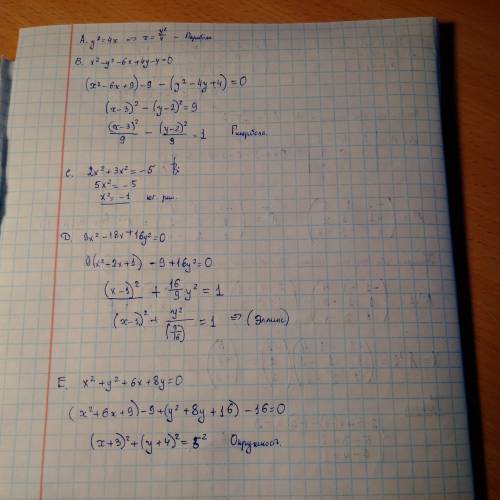 A. y² = 4x => x = y²/4 - Парабола
B. x² - y² - 6x + 4y - 4 = 0
(x² - 6x + 9) - 9 - (y² - 4y + 4) = 0
(x-3)² - (y-2)² = 9
(x-3)²/9 - (y-2)²/9 = 1 Гипербола.
C. 2x² + 3x² = -5
5x² = -5
x² = -1 нет реш.
D. 9x² - 18x + 16y² = 0
9(x² - 2x + 1) - 9 + 16y² = 0
(x-1)² + 16/9 y² = 1
(x-1)² + y²/(9/16) = 1 => (Эллипс)
E. x² + y² + 6x + 8y = 0
(x² + 6x + 9) - 9 + (y² + 8y + 16) - 16 = 0
(x+3)² + (y+4)² = 5² Окружность.